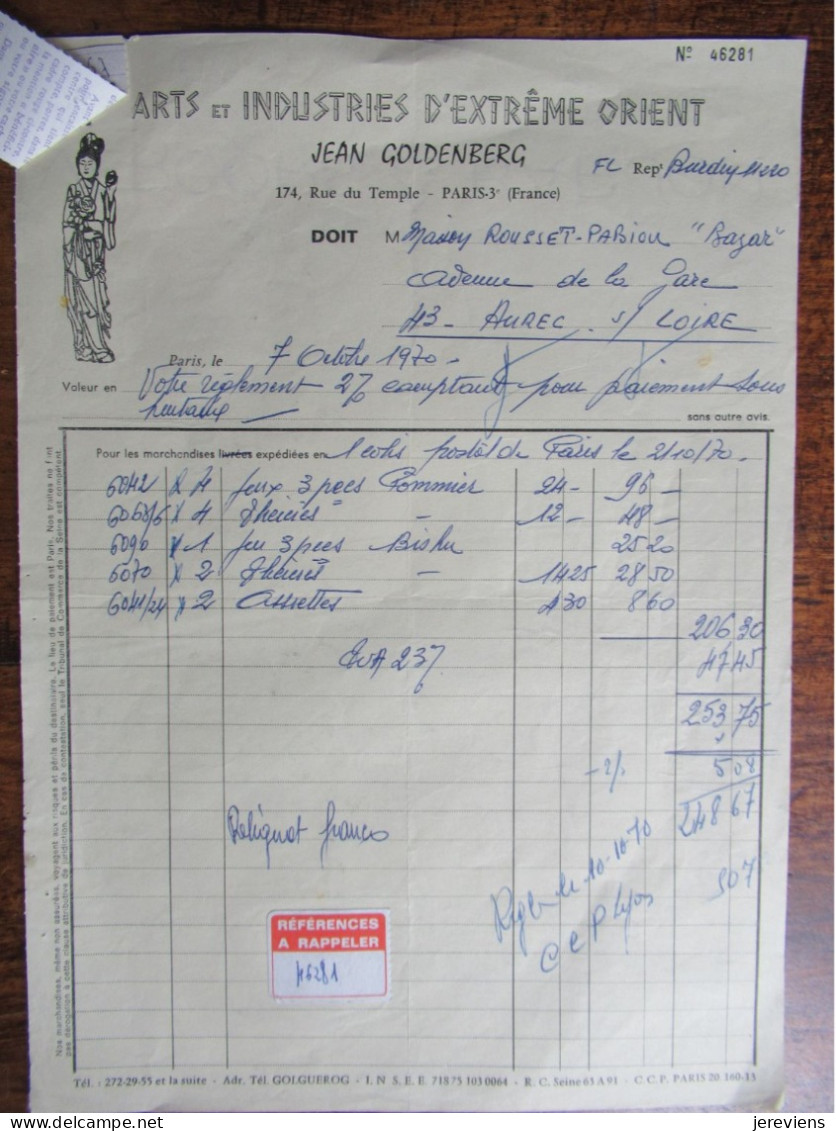 Nº 46281
ARTS ET INDUSTRIES D'EXTRÊME ORIENT
JEAN GOLDENBERG
FL Repᵗ
174, Rue du Temple - PARIS-3ᵉ (France)
DOIT M Maison ROUSSET-PABIOU "Bazar"
Avenue de la Gare
43 - AUREC s/ LOIRE
Paris, le 7 Octobre 1970 -
Valeur en Votre règlement 2% comptant pour paiement sous
huitaine sans autre avis.
Pour les marchandises livrées expédiées en 1 colis postal de Paris le 2/10/70 -
6042 x 4 Jeux 3 pces Pommier 24 - 96 -
x 4 Théières - 12 - 48 -
6090 x 1 Jeu 3 pces Bishu 25 20
6070 x 2 Théières - 14 25 28 50
6041/24 x 2 Assiettes 4 30 8 60
206,30
TVA 23% 47 45
253 75
- 2% 5 08
248 67
Reliquat franco
Réglé le 10-10-70
507
CCP Lyon
RÉFÉRENCES
A RAPPELER
46281
Nos marchandises, même non assurées, voyagent aux risques et périls du destinataire. Le lieu de paiement est Paris. Nos traites ne font
pas dérogation à cette clause attributive de juridiction. En cas de contestation, seul le Tribunal de Commerce de la Seine est compétent.
Tél. : 272-29-55 et la suite - Adr. Tél. GOLGUEROG - I. N S. E. E 718 75 103 0064 - R. C. Seine 63 A 91 - C C P. PARIS 20.160-13
jereviens